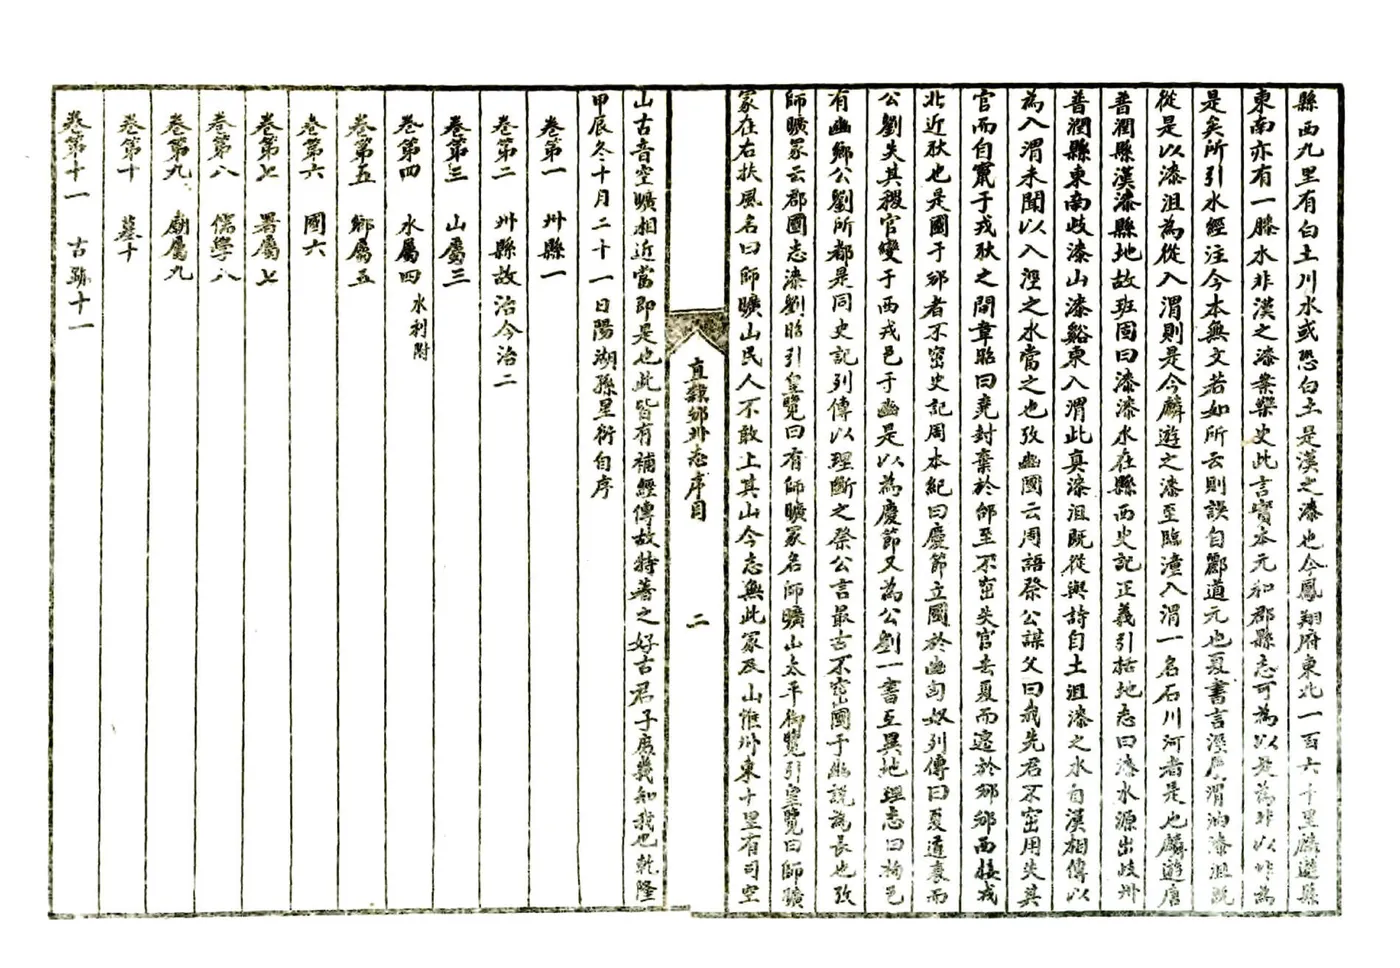 縣西九里有白土川水或恐白土是漢之漆也今鳳翔府東北一百六十里麟遊縣
東南亦有一膝水非漢之漆案樂史此言實本元和郡縣志可為以是為非以非為
是矣所引水經注今本無文若如所云則誤自酈道元也夏書言涇屬渭汭漆沮既
從是以漆沮為從入渭則是今麟遊之漆至臨潼入渭一名石川河者是也麟遊唐
普潤縣漢漆縣地故班固曰漆漆水在縣西史記正義引括地志曰漆水源出岐州
普潤縣東南岐漆山漆谿東入渭此真漆沮既從與詩自土沮漆之水自漢相傳以
為入渭未聞以入涇之水當之也攷豳國云周語祭公謀父曰我先君不窋用失其
官而自竄于戎狄之間韋昭曰堯封棄於邰至不窋失官去夏而遷於邠邠西接戎
北近狄也是國于邠者不窋史記周本紀曰慶節立國於豳匈奴列傳曰夏道衰而
公劉失其稷官變于西戎邑于豳是以為慶節又為公劉一書互異地理志曰栒邑
有豳鄉公劉所都是同史記列傳以理斷之祭公言最古不窋國于豳說為長也攷
師曠冢云郡國志漆劉昭引皇覽曰有師曠冢名師曠山太平御覽引皇覽曰師曠
冢在右扶風名曰師曠山民人不敢上其山今志無此冢及山惟州東十里有司空
直隸邠州志序目
二
山古音空曠相近當即是也此皆有補經傳故特著之好古君子庶幾知我也乾隆
甲辰冬十月二十一日陽湖孫星衍自序
卷第一 州縣一
卷第二 州縣故治今治二
卷第三 山屬三
卷第四 水屬四 水利附
卷第五 鄉屬五
卷第六 國六
卷第七 署屬七
卷第八 儒學八
卷第九 廟屬九
卷第十 墓十
卷第十一 古跡十一